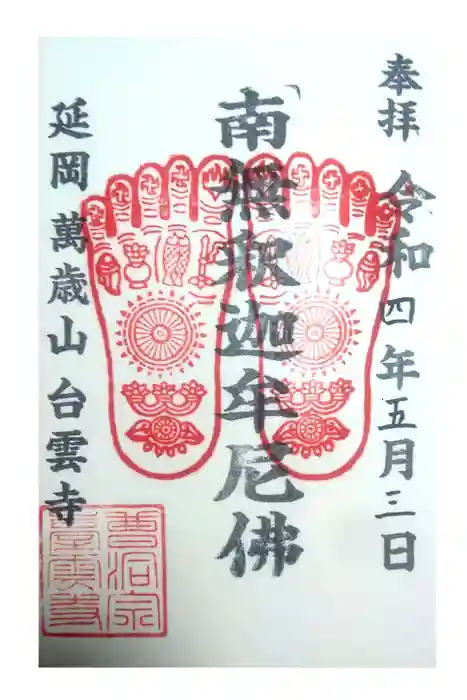 奉拝
令和四年五月三日
南無釈迦牟尼佛
延岡萬歳山台雲寺
曹洞宗
臺雲寺